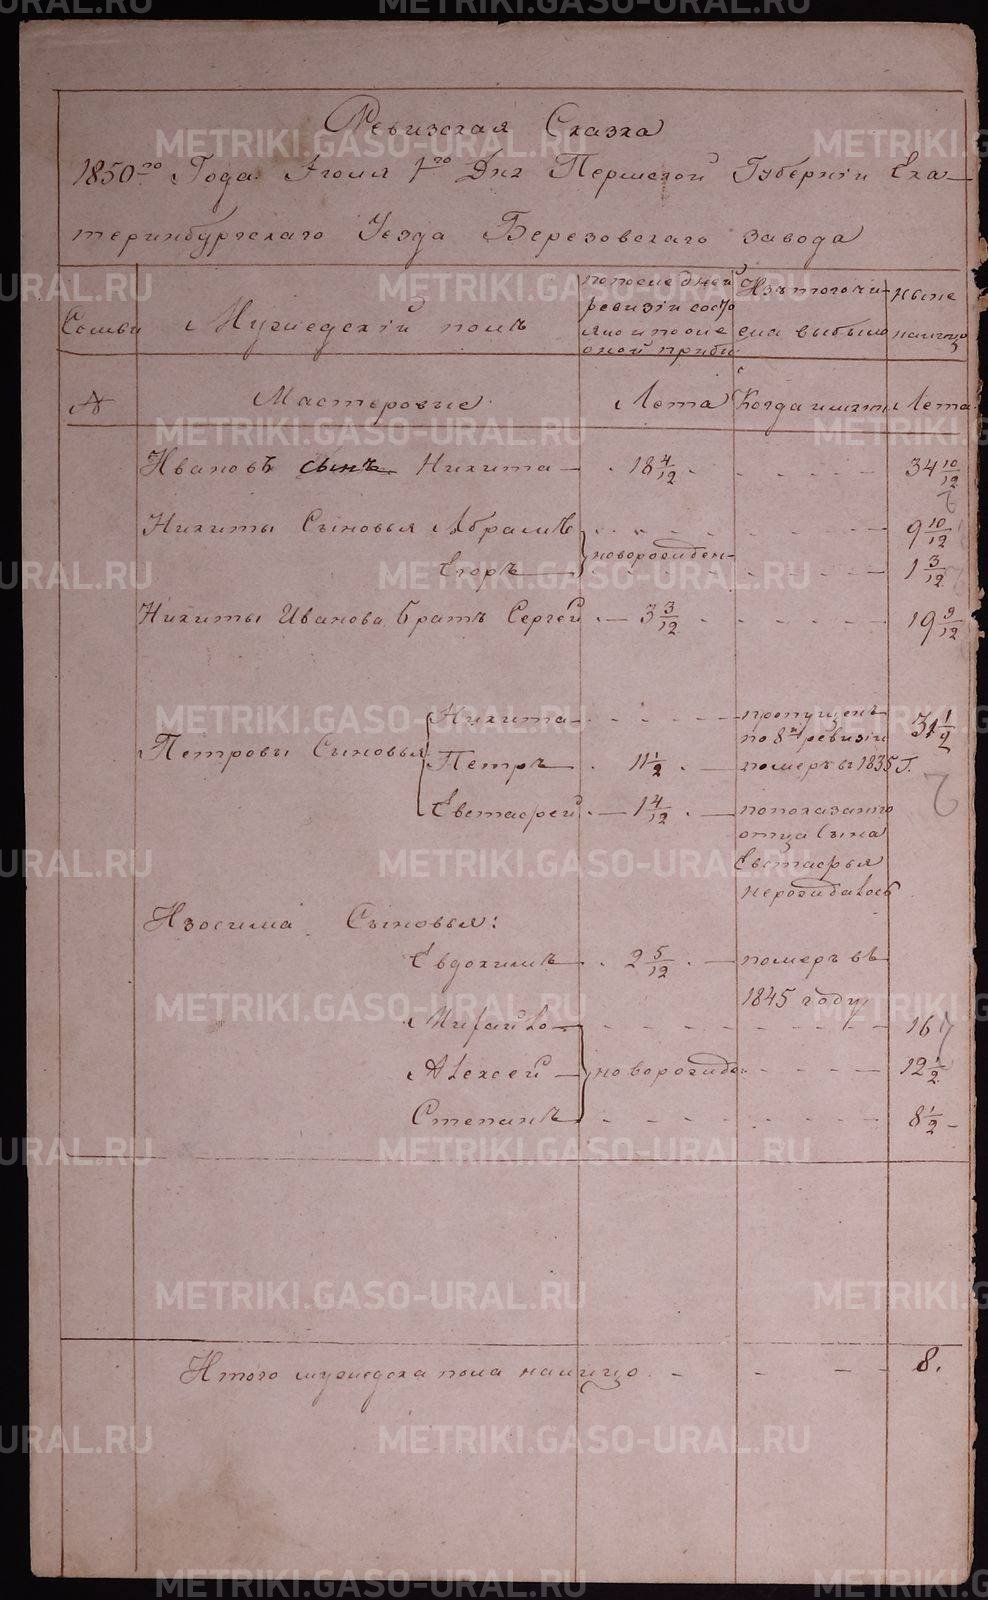 Ревизская Сказка
1850го Года Июля 1го Дня Пермской Губерніи Ека-
теринбургскаго Уезда Березовскаго завода
Семьи
Мужедскій полъ
попоследней
ревизіи состо
яло и после
оной прибы
Изътогочи-
сла выбыло
ныне
налицо
№
Мастеровые
Лета
Когда именно
Лета
Ивановъ сынъ Никита 18 4/12 34 10/12
Никиты Сыновья Абрамъ 9 10/12
новорожден-
Егоръ 1 3/12
Никиты Иванова Братъ Сергей 3 3/12 19 9/12
Петровы Сыновья
Никита пропущенъ
по 8й ревизіи 31 1/2
Петръ 11 1/2 померъ въ 1835 Г.
Евстафей 1 4/12 попоказанію
отца Сына
Евстафья
нерождалось
Изосима Сыновья:
Евдокимъ 2 5/12 померъ въ
1845 году
Михайло 16
Алексей новорожде: 12 1/2
Степанъ 8 1/2
Итого мужедска пола налицо 8.
METRIKI.GASO-URAL.RU